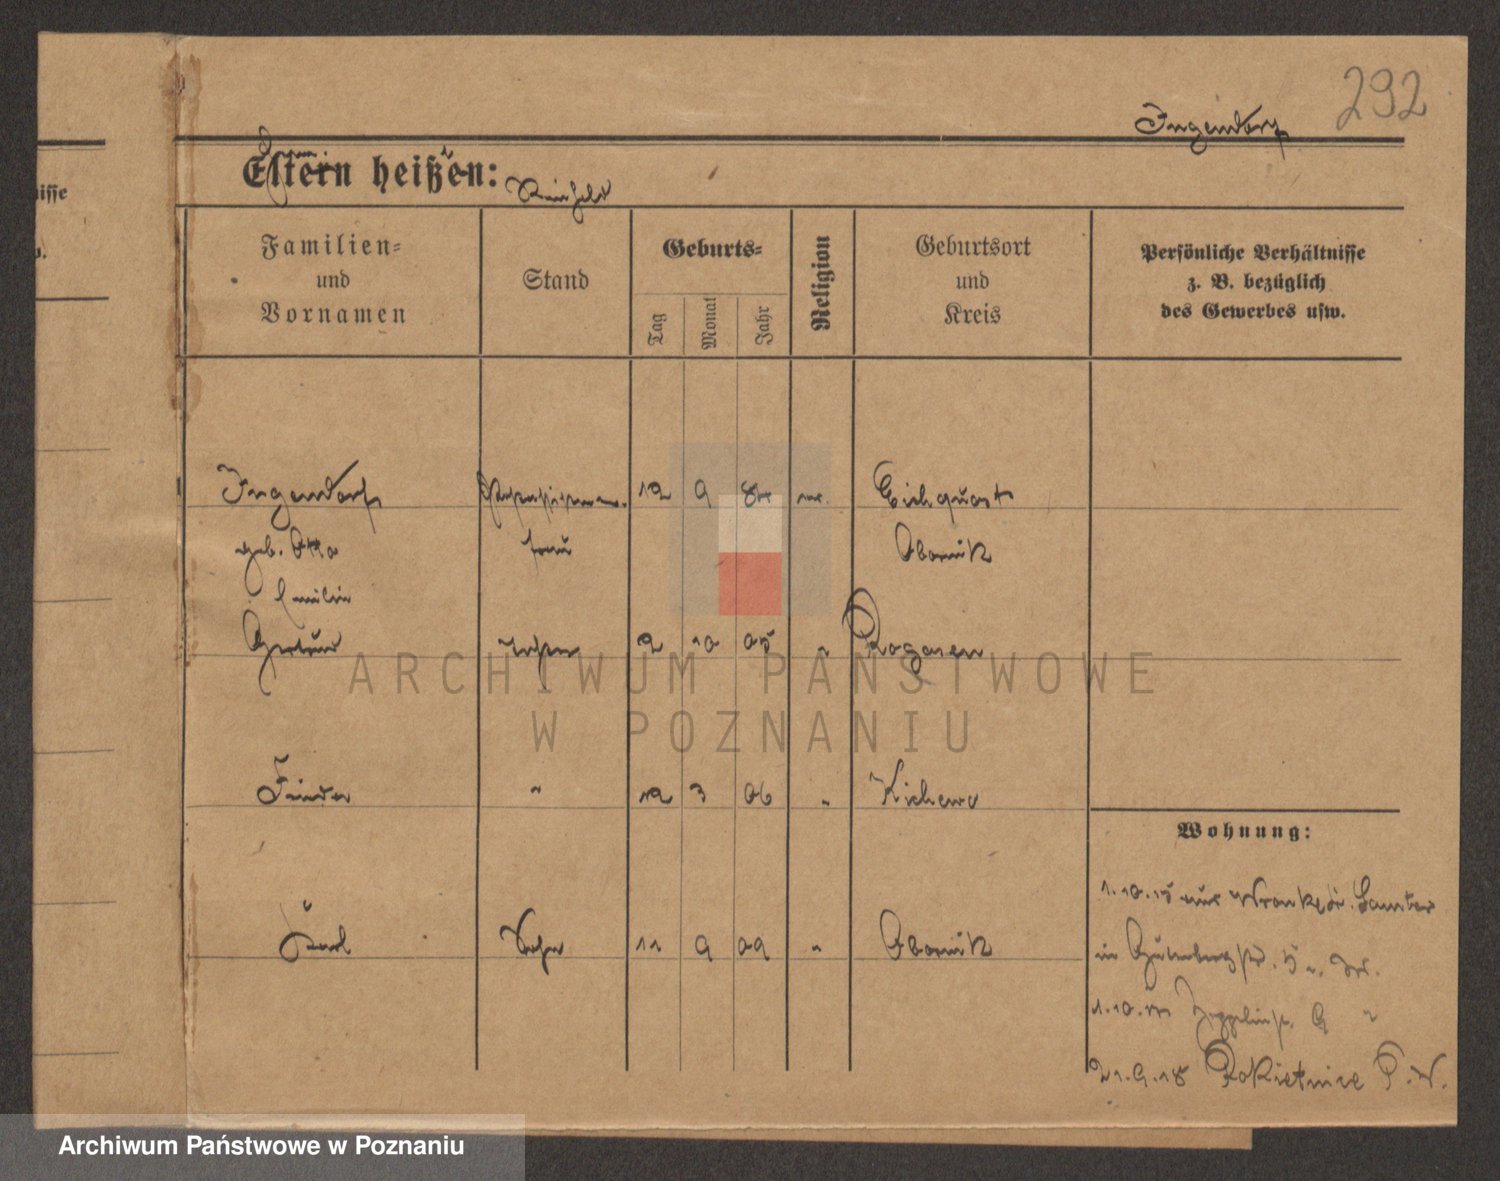 292
Ingendorf
Eltern heißen:
Familien=
und
Vornamen
Stand
Geburts=
Tag
Monat
Jahr
Religion
Geburtsort
und
Kreis
Persönliche Verhältnisse
z. B. bezüglich
des Gewerbes usw.
isse
Ingendorf 12 9 84 Eichquast
geb. Otto frau Obornik
Emilie
Gertrud 2 10 05 " Rogasen
Frieda " 12 3 06 " Kichewo
Karl Sohn 11 9 09 " Obornik
Wohnung:
1.10.15 aus Wronke, Kr. Samter
in Gutenbergstr. 5
1.10. Zeppelinstr. 9 "
21.9.18 Rokietnice P. W.
ARCHIWUM PAŃSTWOWE
W POZNANIU
Archiwum Państwowe w Poznaniu